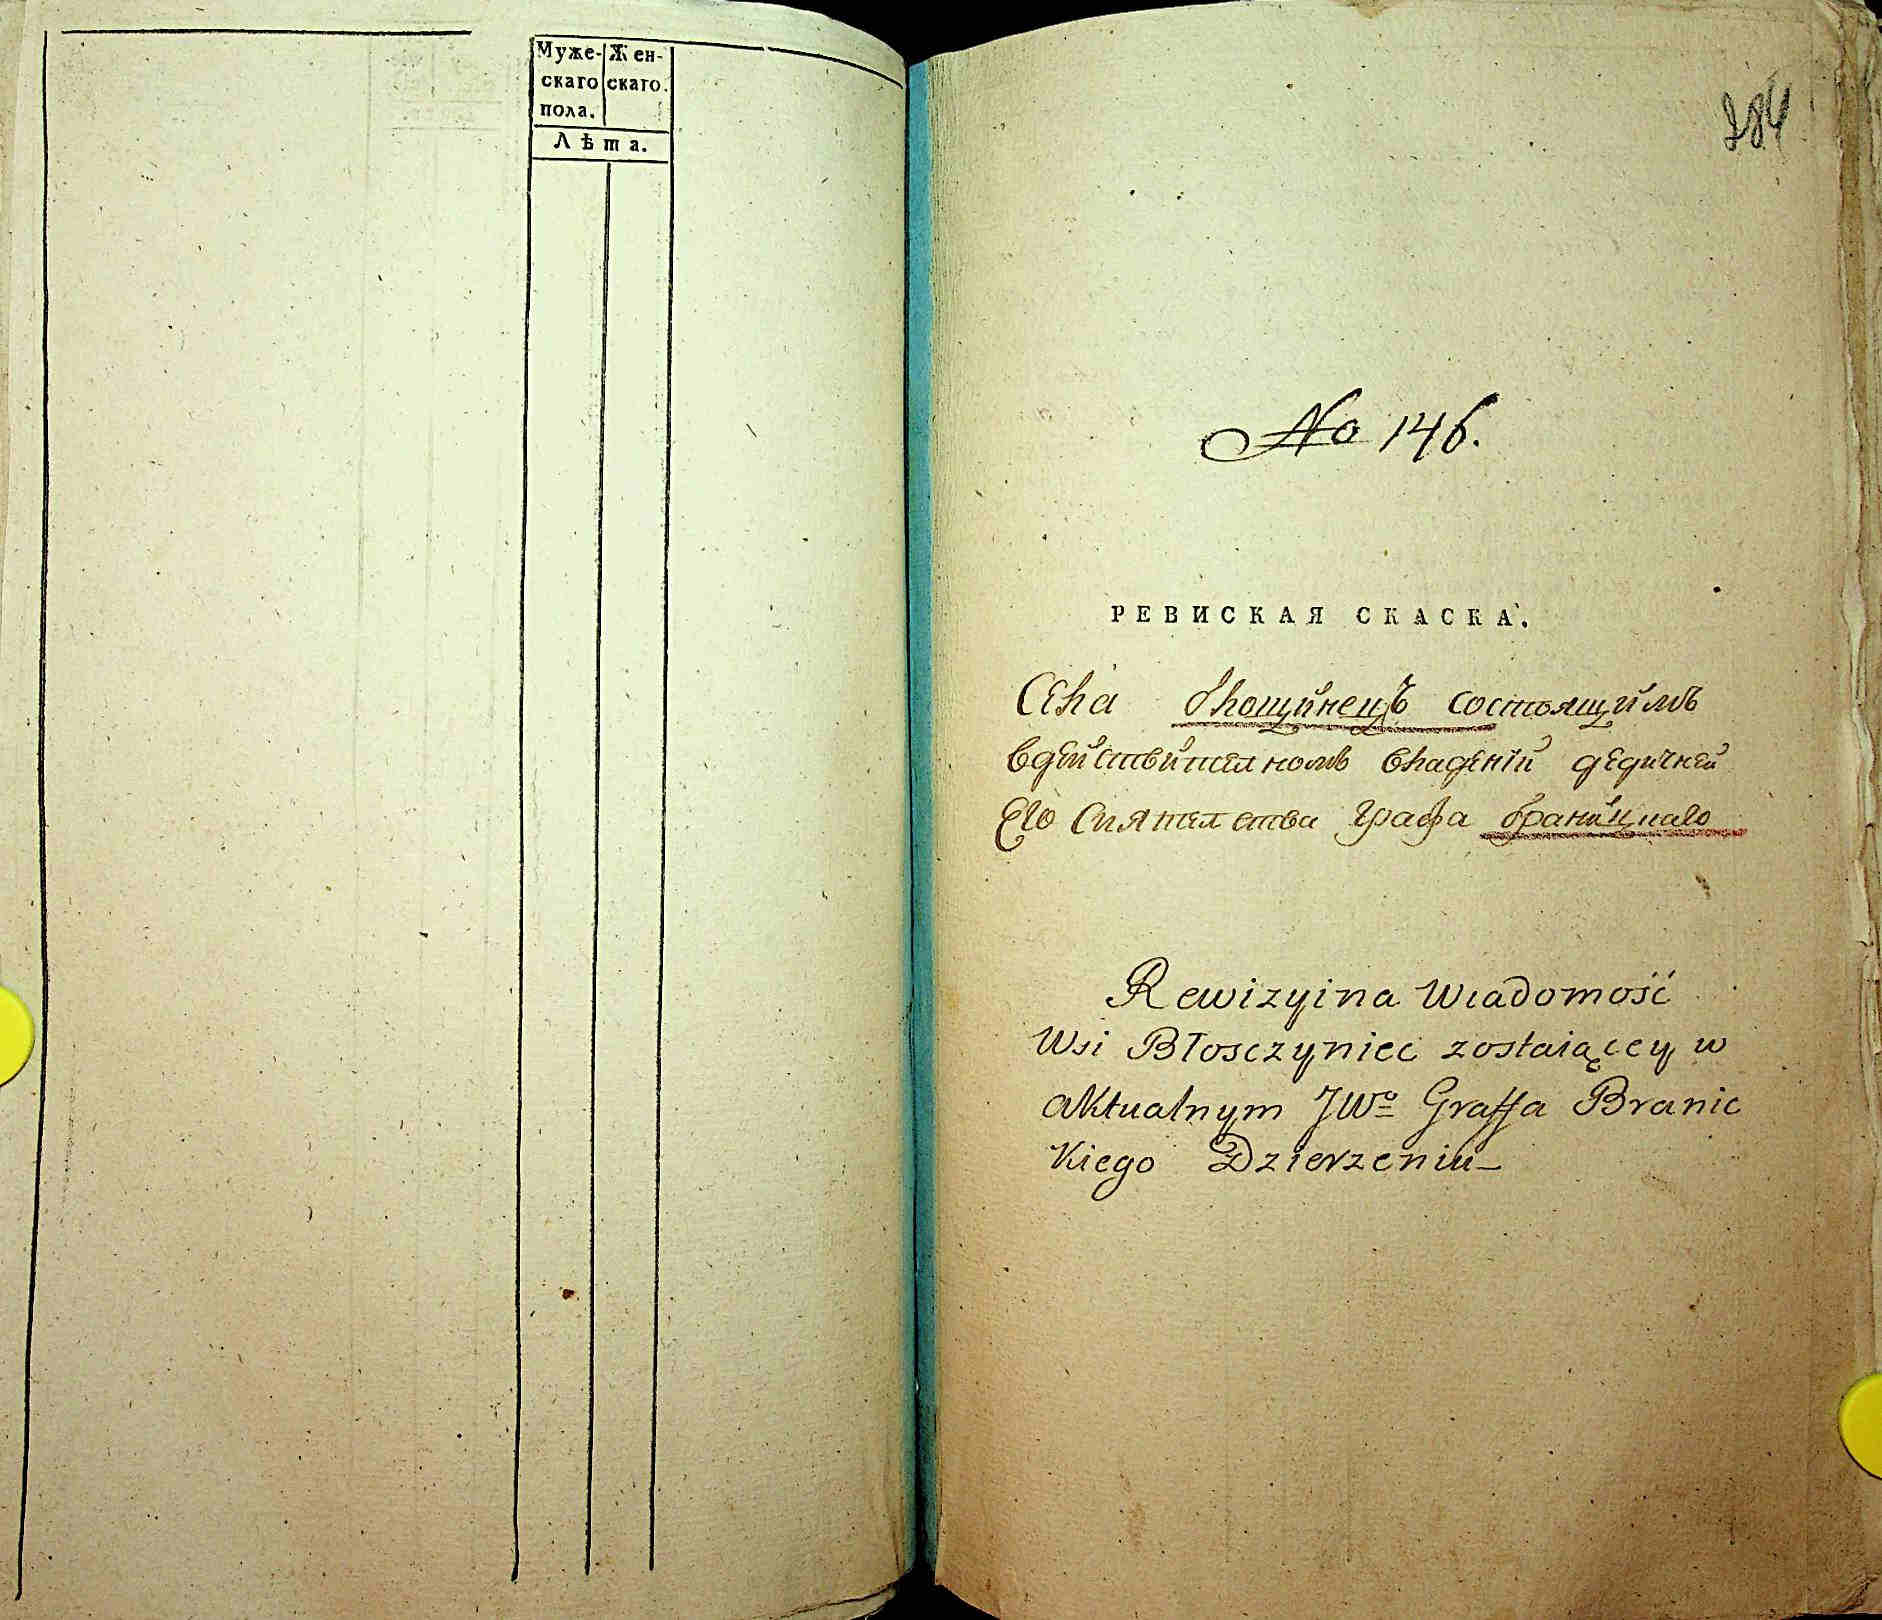 Муже- Жен-
скаго скаго.
пола.
Лѣта.
284
No 146.
РЕВИСКАЯ СКАСКА.
Села блощинецъ состоящимъ
вдействителномъ владений дедичней
Его Сиятелства графа браницкаго
Rewizyina Wiadomość
Wsi Błosczyniec zostaiącey w
aktualnym JWo Graffa Branic
kiego Dzierzeniu